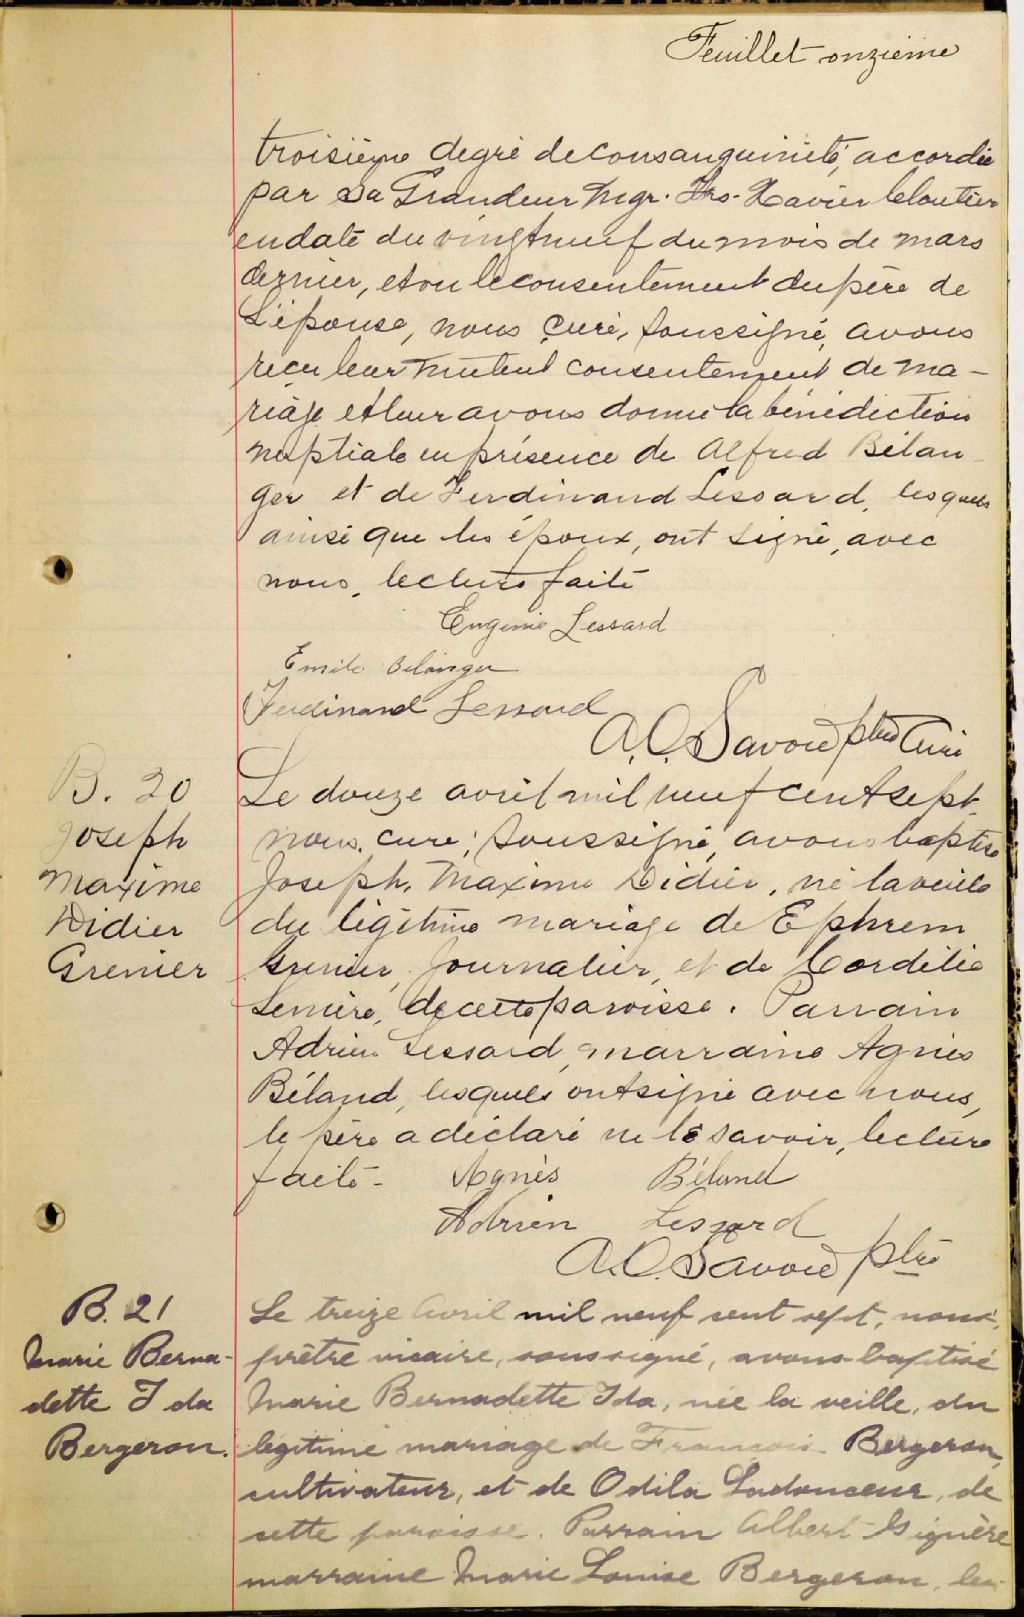 Feuillet onzieme
troisième degré de consanguinité, accordée
par Sa Grandeur Mgr. Frs. Xavier Cloutier
en date du vingt neuf du mois de mars
dernier, et ou le consentement du père de
L'épouse, nous curé, soussigné, avons
reçu leur mutuel consentement de ma-
riage et leur avons donné la bénédiction
nuptiale en présence de Alfred Bélan-
ger et de Ferdinand Lessard, lesquels
ainsi que les époux, ont signé, avec
nous, lecture faite
Eugenie Lessard
Emile Belanger
Ferdinand Lessard
A. O. Savoie ptre Curé
B. 20
Joseph
Maxime
Didier
Grenier
Le douze avril mil neuf cent sept,
nous, curé, soussigné, avons baptisé
Joseph, Maxime Didier, né la veille
du légitime mariage de Ephrem
Grenier, journalier, et de Cordélie
de cette paroisse. Parrain
Adrien Lessard, marraine Agnès
Béland, lesquels ont signé avec nous,
le père a déclaré ne le savoir, lecture
faite- Agnès Béland
Adrien Lessard
A. O. Savoie ptre
B. 21
Marie Berna-
dette Ida
Bergeron.
Le treize Avril mil neuf cent sept, nous,
prêtre vicaire, soussigné, avons baptisé
Marie Bernadette Ida, née la veille, du
légitime mariage de François Bergeron,
cultivateur, et de Odila Ladouceur, de
cette paroisse. Parrain Albert Giguère
marraine Marie Louise Bergeron, les